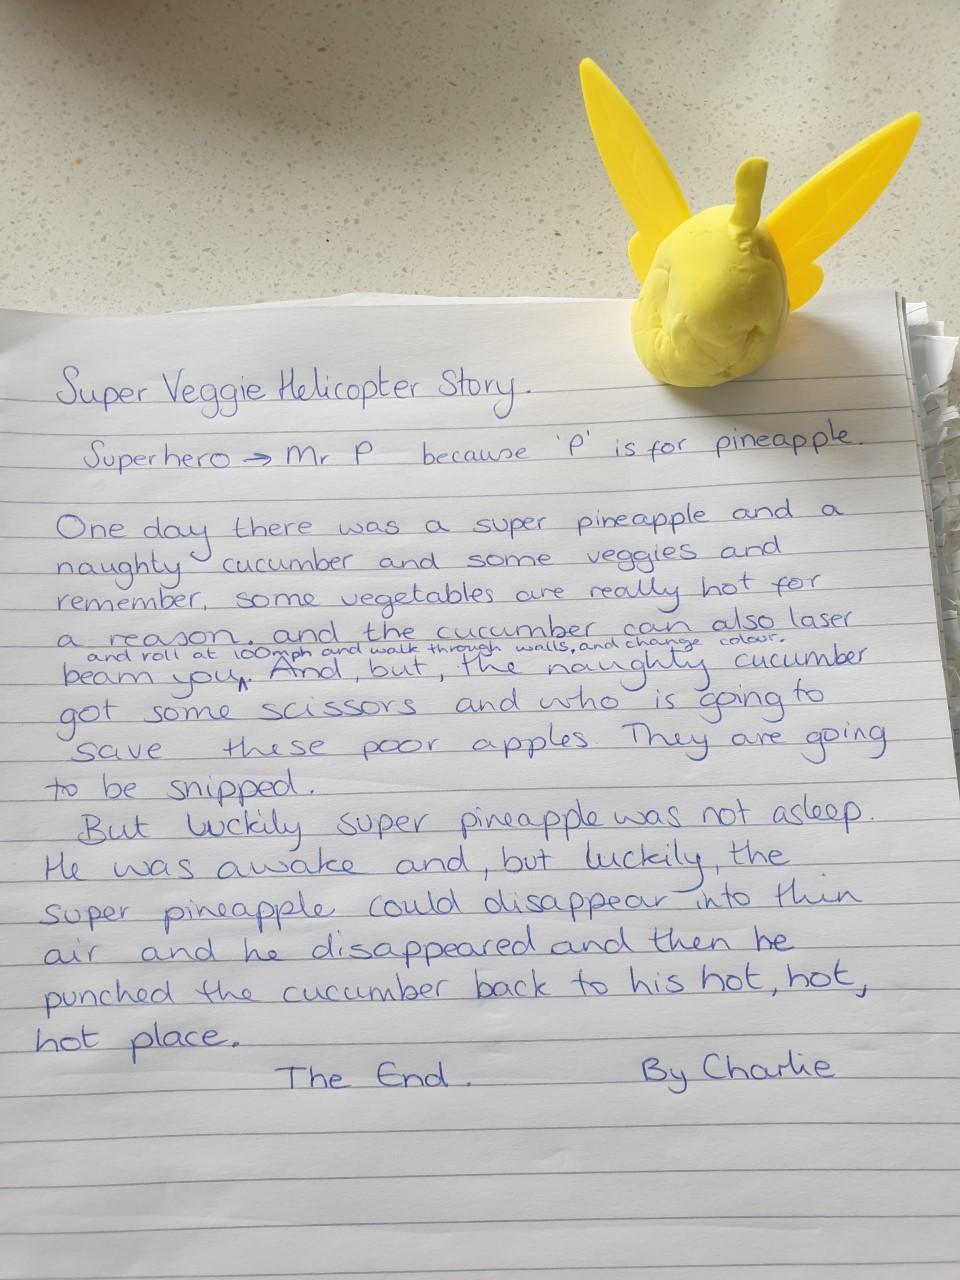 Super Veggie Helicopter Story.
Superhero → Mr P because 'P' is for pineapple.
One day there was a super pineapple and a
naughty cucumber and some veggies and
remember, some vegetables are really hot for
a reason. and the cucumber can also laser
and roll at 100mph and walk through walls, and change colour.
beam you^. And, but, the naughty cucumber
got some scissors and who is going to
save these poor apples. They are going
to be snipped.
But luckily super pineapple was not asleep.
He was awake and, but luckily, the
super pineapple could disappear into thin
air and he disappeared and then he
punched the cucumber back to his hot, hot,
hot place.
The End. By Charlie